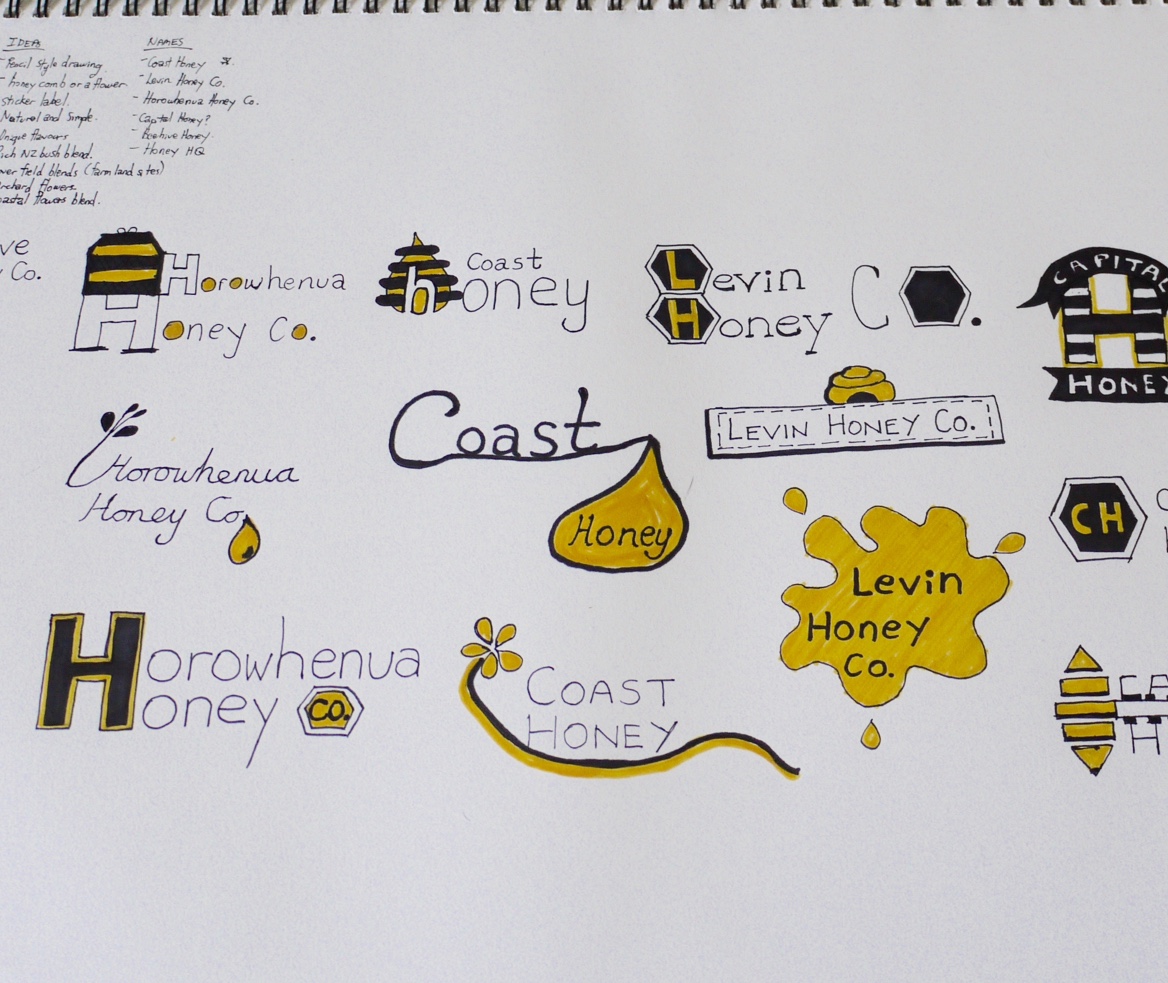 IDEA
- Pencil style drawing.
- honey comb or a flower.
sticker label.
Natural and Simple.
Unique flavours
Rich NZ bush blend.
field blends (farm land sites)
flowers
flowers blend.
NAMES
- Coast Honey
- Levin Honey Co.
- Horowhenua Honey Co.
- Capital Honey?
- Beehive Honey.
- Honey HQ
ve
Co.
Horowhenua
Honey Co.
Coast
honey
Levin
Honey
Co.
CAPITAL
HONEY
Horowhenua
Honey Co.
Coast
Honey
LEVIN HONEY CO.
CH
Levin
Honey
Co.
Horowhenua
Honey CO.
COAST
HONEY
CA
H